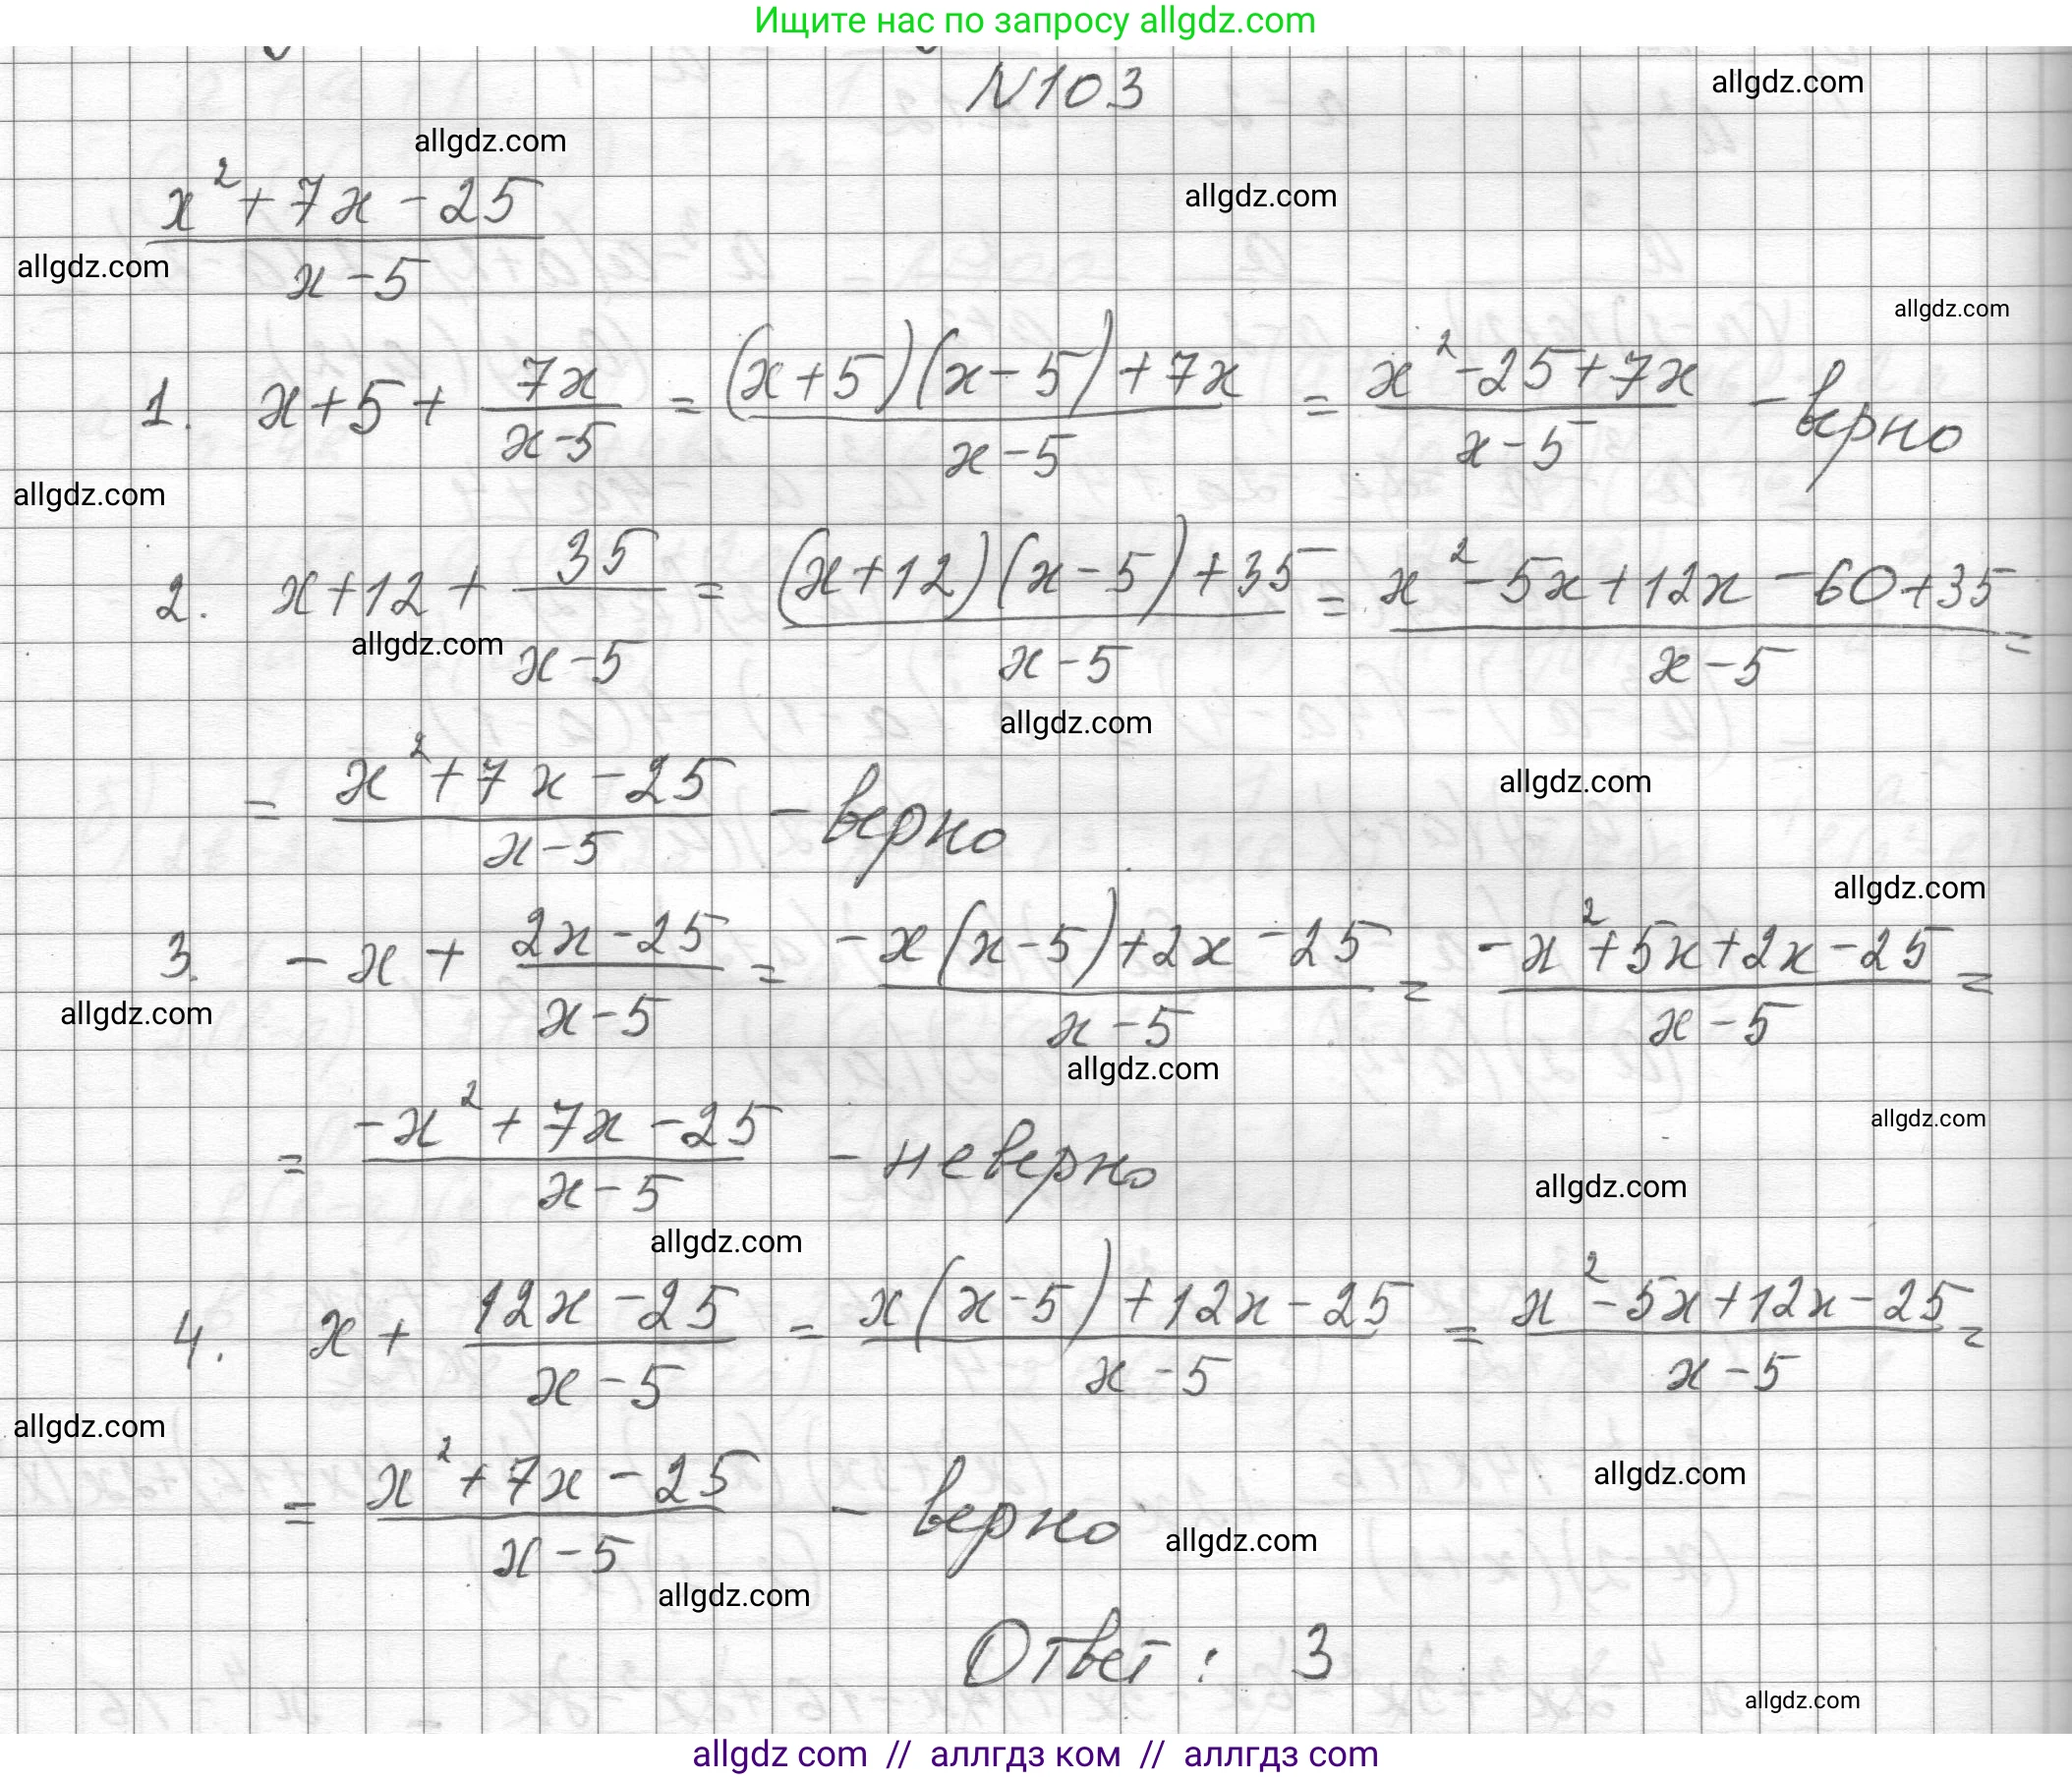 Ищите нас по запросу allgdz.com
N103
allgdz.com
allgdz.com
allgdz.com
(x² + 7x - 25)/(x - 5)
allgdz.com
allgdz.com
1. x + 5 + 7x/(x-5) = ((x+5)(x-5) + 7x)/(x-5) = (x² - 25 + 7x)/(x-5) - верно
allgdz.com
2. x + 12 + 35/(x-5) = ((x+12)(x-5) + 35)/(x-5) = (x² - 5x + 12x - 60 + 35)/(x-5) =
allgdz.com
allgdz.com
allgdz.com
= (x² + 7x - 25)/(x-5) - верно
allgdz.com
3. - x + (2x - 25)/(x-5) = (-x(x-5) + 2x - 25)/(x-5) = (-x² + 5x + 2x - 25)/(x-5) =
allgdz.com
allgdz.com
allgdz.com
= (-x² + 7x - 25)/(x-5) - неверно
allgdz.com
allgdz.com
4. x + (12x - 25)/(x-5) = (x(x-5) + 12x - 25)/(x-5) = (x² - 5x + 12x - 25)/(x-5) =
allgdz.com
allgdz.com
= (x² + 7x - 25)/(x-5) - верно
allgdz.com
allgdz.com
Ответ: 3
allgdz.com
allgdz com // аллгдз ком // аллгдз com